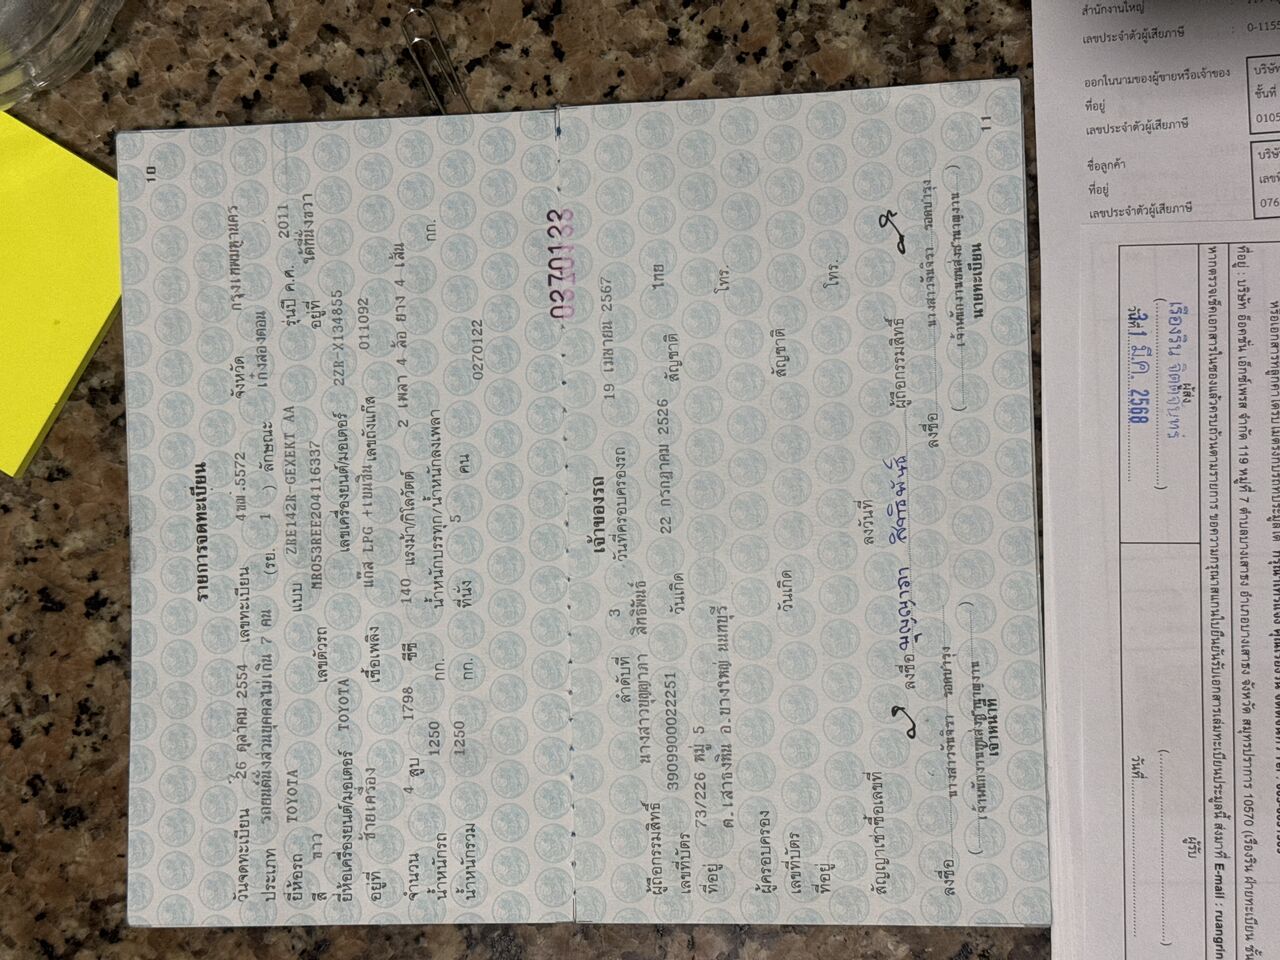 10
รายการจดทะเบียน
วันจดทะเบียน 26 ตุลาคม 2554 เลขทะเบียน 4ขผ.5572 จังหวัด กรุงเทพมหานคร
ประเภท รถยนต์นั่งส่วนบุคคลไม่เกิน 7 คน (รย. 1 ) ลักษณะ เก๋งสองตอน
ยี่ห้อรถ TOYOTA แบบ ZRE142R-GEXEKT AA รุ่นปี ค.ศ. 2011
สี ขาว เลขตัวรถ MR053REE204116337 อยู่ที่ ใต้ที่นั่งขวา
ยี่ห้อเครื่องยนต์/มอเตอร์ TOYOTA เลขเครื่องยนต์/มอเตอร์ 2ZR-X134855
อยู่ที่ ซ้ายเครื่อง เชื้อเพลิง แก๊ส LPG +เบนซิน เลขถังแก๊ส 011092
จำนวน 4 สูบ 1798 ซีซี 140 แรงม้า/กิโลวัตต์ 2 เพลา 4 ล้อ ยาง 4 เส้น
น้ำหนักรถ 1250 กก. น้ำหนักบรรทุก/น้ำหนักลงเพลา กก.
น้ำหนักรวม 1250 กก. ที่นั่ง 5 คน 0270122
0270122
เจ้าของรถ
ลำดับที่ 3 วันที่ครอบครองรถ 19 เมษายน 2567
ผู้ถือกรรมสิทธิ์ นางสาวบุญญาภา สิทธิพันธ์
เลขที่บัตร 3909900022251 วันเกิด 22 กรกฎาคม 2526 สัญชาติ ไทย
ที่อยู่ 73/226 หมู่ 5
ต.เสาธงหิน อ.บางใหญ่ นนทบุรี โทร.
ผู้ครอบครอง
เลขที่บัตร วันเกิด สัญชาติ
ที่อยู่ โทร.
สัญญาเช่าซื้อเลขที่ ลงวันที่
ลงชื่อ บุญญาภา สิทธิพันธ์ ผู้ถือกรรมสิทธิ์
ลงชื่อ นางสาววันจิรา รอดบำรุง ลงชื่อ นางสาววันจิรา รอดบำรุง
( เจ้าพนักงานขนส่งชำนาญงาน ) ( เจ้าพนักงานขนส่งชำนาญงาน )
เจ้าหน้าที่ นายทะเบียน
11
สำนักงานใหญ่
เลขประจำตัวผู้เสียภาษี : 0-1155
ออกในนามของผู้ขายหรือเจ้าของ บริษัท
ที่อยู่ ชั้นที่
เลขประจำตัวผู้เสียภาษี 0105
ชื่อลูกค้า บริษั
ที่อยู่ เลขที่
เลขประจำตัวผู้เสียภาษี 076
ผู้ส่ง
เรืองริน จิตต์จันทร์
(..............)
วันที่ 31 มี.ค. 2568
ผู้รับ
(..............)
วันที่..............
ที่อยู่ : บริษัท อ็อคชั่น เอ็กซ์เพรส จำกัด 119 หมู่ที่ 7 ตำบลบางเสาธง อำเภอบางเสาธง จังหวัด สมุทรปราการ 10570 (เรืองริน ฝ่ายทะเบียน ชั้น
หากตรวจเช็คเอกสารในซองแล้วครบถ้วนตามรายการ ขอความกรุณาสแกนใบยืนยันรับเอกสารเล่มทะเบียนประมูลนี้ ส่งมาที่ E-mail : ruangrin